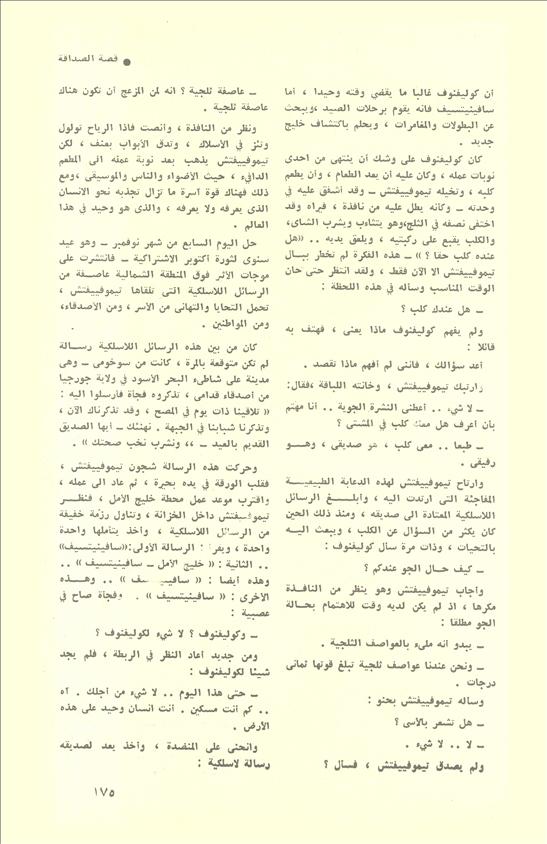 ● قصة الصداقة
أن كوليغنوف غالبا ما يقضى وقته وحيدا ، أما
سافينيتسيف فانه يقوم برحلات الصيد ،ويبحث
عن البطولات والمغامرات ، ويحلم باكتشاف خليج
جديد .
كان كوليغنوف على وشك أن ينتهى من احدى
نوبات عمله ، وكان عليه أن يعد الطعام ، وأن يطعم
كلبه ، وتخيله تيموفييفتش ــ وقد أشفق عليه في
وحدته ــ وكأنه يطل عليه من نافذة ، فيراه وقد
اختفى نصفه في الثلج،وهو يتثاءب ويشرب الشاى،
والكلب يقبع على ركبتيه ، ويلعق يديه .. «هل
عنده كلب حقا ؟ » ــ هذه الفكرة لم تخطر ببال
تيموفييفتش الا الآن فقط ، ولقد انتظر حتى حان
الوقت المناسب وسأله في هذه اللحظة :
ــ هل عندك كلب ؟
ولم يفهم كوليغنوف ماذا يعنى ، فهتف به
قائلا :
أعد سؤالك ، فاننى لم أفهم ماذا تقصد .
وارتبك تيموفييفتش ، وخانته اللباقة ،فقال:
ــ لا شىء .. أعطنى النشرة الجوية .. أنا مهتم
بأن أعرف هل معك كلب في المشتى ؟
ــ طبعا .. معى كلب ، هو صديقى ، وهــو
رفيقى .
وارتاح تيموفييفتش لهذه الدعابة الطبيعيــة
المفاجئة التى ارتدت اليه ، وابلــغ الرسائل
اللاسلكية المعتادة الى صديقه ، ومنذ ذلك الحين
كان يكثر من السؤال عن الكلب ، ويبعث اليــه
بالتحيات ، وذات مرة سأل كوليغنوف :
ــ كيف حــال الجو عندكم ؟
وأجاب تيموفييفتش وهو ينظر من النافــذة
مكرها ، اذ لم يكن لديه وقت للاهتمام بحــالة
الجو مطلقا :
ــ يبدو أنه ملىء بالعواصف الثلجية .
ــ ونحن عندنا عواصف ثلجية تبلغ قوتها ثمانى
درجات .
وسأله تيموفييفتش بحنو :
ــ هل تشعر بالأسى ؟
ــ لا .. لا شىء .
ولم يصدق تيموفييفتش ، فسأل ؟
ــ عاصفة ثلجية ؟ انه لمن المزعج أن تكون هناك
عاصفة ثلجية .
ونظر من النافذة ، وأنصت فاذا الرياح تولول
وتئز في الأسلاك ، وتدق الأبواب بعنف ، لكن
تيموفييفتش يذهب بعد نوبة عمله الى المطعم
الدافىء ، حيث الأضواء والناس والموسيقى ،ومع
ذلك فهناك قوة آسرة ما تزال تجذبه نحو الانسان
الذى يعرفه ولا يعرفه ، والذى هو وحيد في هذا
العالم .
حل اليوم السابع من شهر نوفمبر ــ وهو عيد
سنوى لثورة أكتوبر الاشتراكية ــ فانتشرت على
موجات الأثير فوق المنطقة الشمالية عاصــفة من
الرسائل اللاسلكية التى تلقاها تيموفييفتش ،
تحمل التحايا والتهانى من الأسر ، ومن الأصدقاء،
ومن المواطنين .
كان من بين هذه الرسائل اللاسلكية رســالة
لم تكن متوقعة بالمرة ، كانت من سوخومى ــ وهى
مدينة على شاطىء البحر الأسود في ولاية جورجيا
من أصدقاء قدامى ، تذكروه فجأة فأرسلوا اليه :
« تلاقينا ذات يوم في المصح ، وقد تذكرناك الآن ،
وتذكرنا شبابنا في الجبهة . نهنئك ــ أيها الصديق
القديم بالعيد ــ ،، ونشرب نخب صحتك » .
وحركت هذه الرسالة شجون تيموفييفتش ،
فقلب الورقة في يده بحيرة ، ثم عاد الى عمله ،
واقترب موعد عمل محطة خليج الأمل ، فنظــر
تيموفييفتش داخل الخزانة ، وتناول رزمة خفيفة
من الرسائل اللاسلكية ، وأخذ يتأملها واحدة
واحدة ، ويقرأ : الرسالة الأولى:«سافينيتسيف»
.. الثانية : « خليج الأمل ــ سافينيتسيف » ..
وهذه أيضا : « سافينيتسيف » .. وهــذه
الأخرى : « سافينيتسيف » . وفجأة صاح في
عصبية :
ــ وكوليغنوف ؟ لا شىء لكوليغنوف ؟
ومن جديد أعاد النظر في الربطة ، فلم يجد
شيئا لكوليغنوف :
ــ حتى هذا اليوم .. لا شىء من أجلك . آه
.. كم أنت مسكين . أنت انسان وحيد على هذه
الأرض .
وانحنى على المنضدة ، وأخذ يعد لصديقه
رسالة لاسلكية :
١٧٥